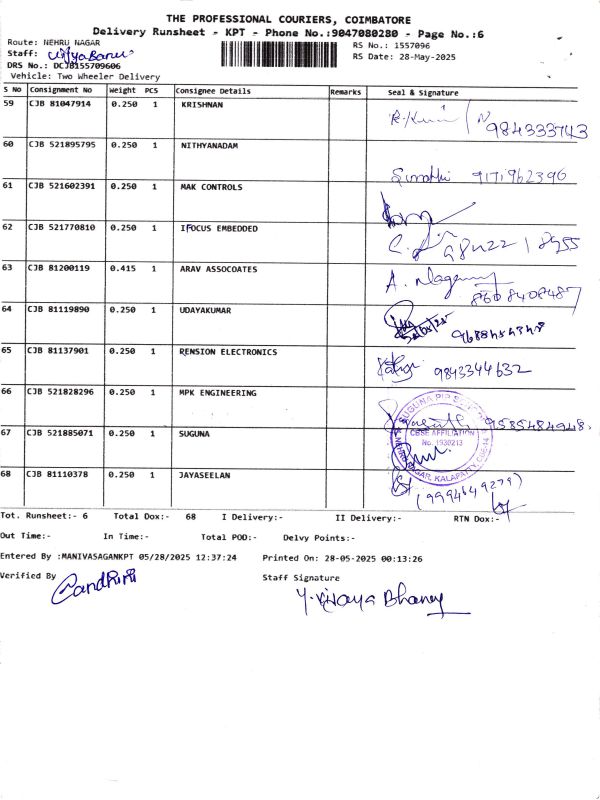 THE PROFESSIONAL COURIERS, COIMBATORE
Delivery Runsheet - KPT - Phone No.:9047080280 - Page No.:6
Route: NEHRU NAGAR
RS No.: 1557096
Staff:
RS Date: 28-May-2025
DRS No.: DCJB1557096O6
Vehicle: Two Wheeler Delivery
S No Consignment No Weight PCS Consignee Details Remarks Seal & Signature
59 CJB 81047914 0.250 1 KRISHNAN
984333743
60 CJB 521895795 0.250 1 NITHYANADAM
9171962396
61 CJB 521602391 0.250 1 MAK CONTROLS
62 CJB 521770810 0.250 1 IFOCUS EMBEDDED
63 CJB 81200119 0.415 1 ARAV ASSOCOATES
A. 8608408487
64 CJB 81119890 0.250 1 UDAYAKUMAR
65 CJB 81137901 0.250 1 RENSION ELECTRONICS
9843344632
66 CJB 521828296 0.250 1 MPK ENGINEERING
9585484948.
67 CJB 521885071 0.250 1 SUGUNA
SUGUNA PIP
CBSE AFFILIATION
No. 1930213
NEHRU NAGAR, KALAPATTY, CBE-14
68 CJB 81110378 0.250 1 JAYASEELAN
(9994649279)
Tot. Runsheet:- 6 Total Dox:- 68 I Delivery:- II Delivery:- RTN Dox:-
Out Time:- In Time:- Total POD:- Delvy Points:-
Entered By :MANIVASAGANKPT 05/28/2025 12:37:24 Printed On: 28-05-2025 00:13:26
Verified By
Staff Signature
Y. Vijaya Bhanu